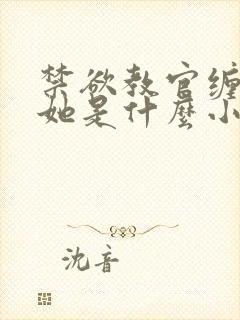 禁欲教官缠
她是什麼小
沈音